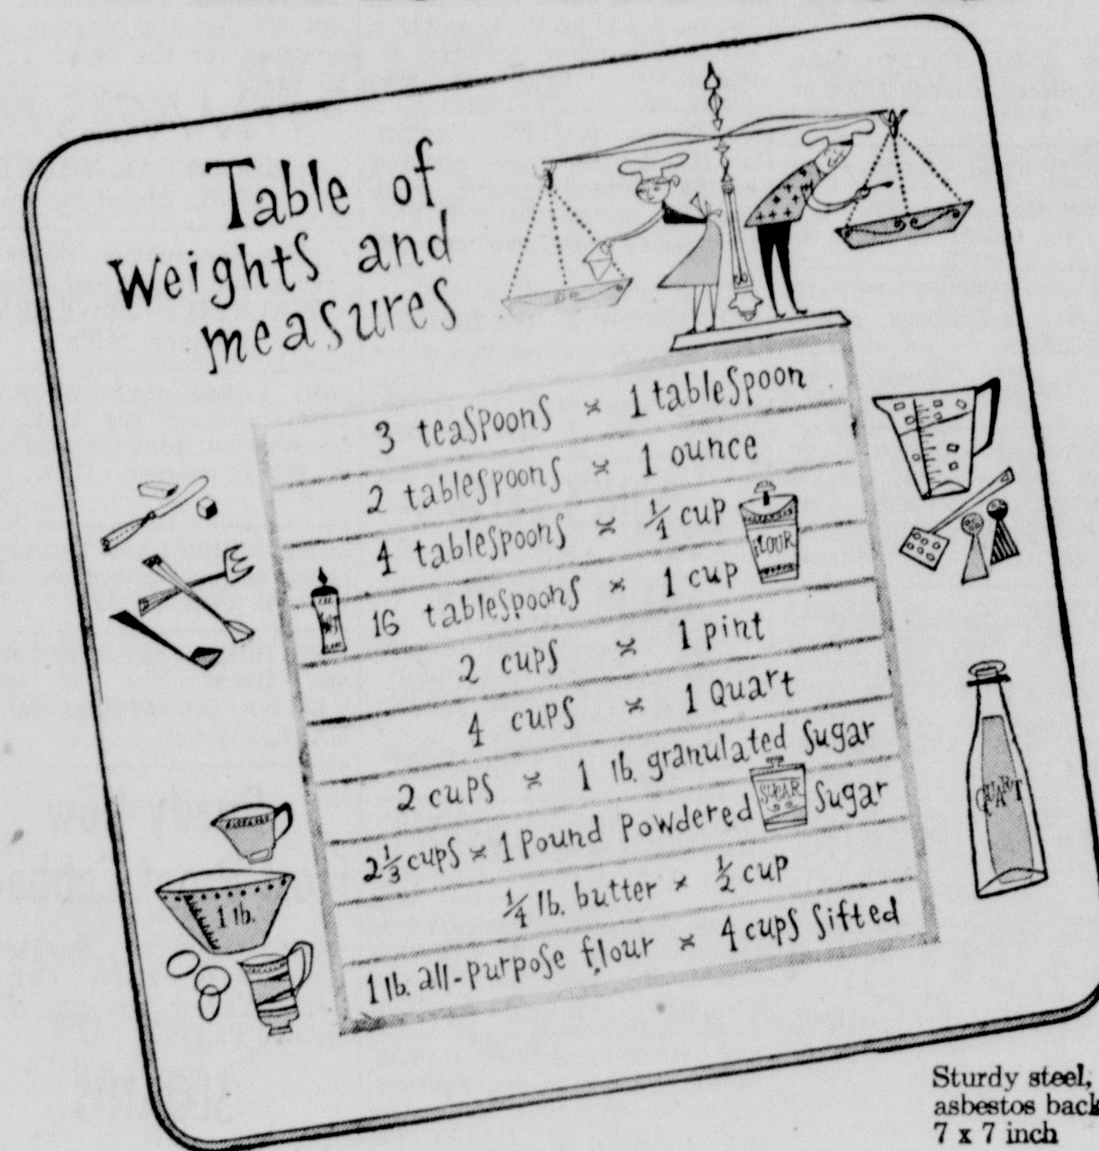 Table of
Weights and
measures
3 teaspoons = 1 tablespoon
2 tablespoons = 1 ounce
4 tablespoons = ¼ cup
FLOUR
16 tablespoons = 1 cup
2 cups = 1 pint
4 cups = 1 Quart
2 cups = 1 lb. granulated Sugar
2⅓ cups = 1 Pound Powdered Sugar
SUGAR
¼ lb. butter = ½ cup
1 lb. all-purpose flour = 4 cups Sifted
1 lb.
QUART
Sturdy steel,
asbestos back
7 x 7 inch